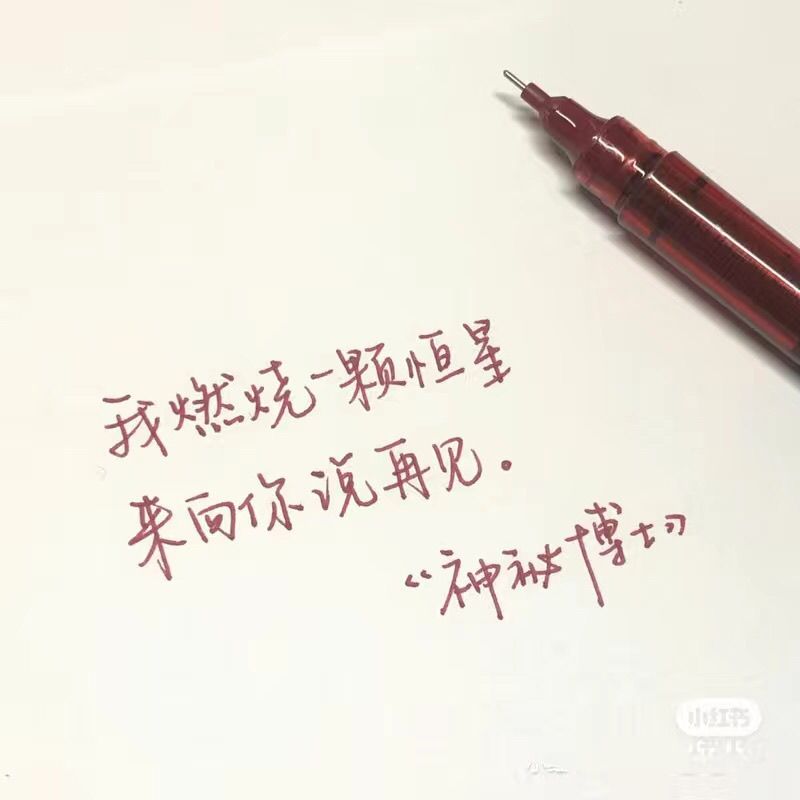 我燃烧一颗恒星
来向你说再见。
《神秘博士》
小红书